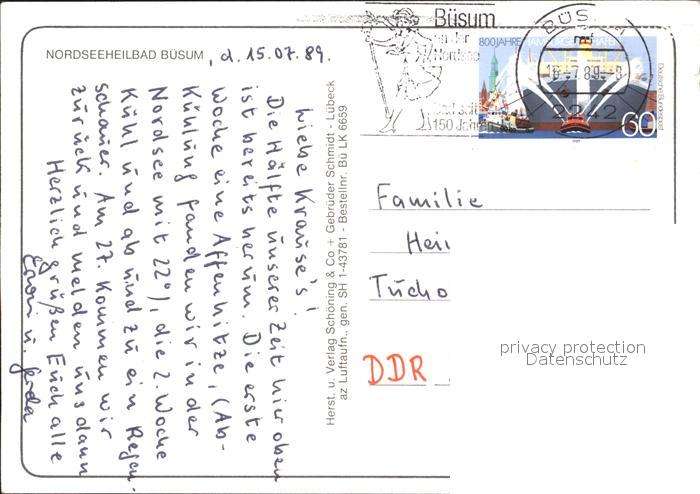 NORDSEEHEILBAD BÜSUM, d. 15.07.89.
Liebe Krause's!
Die Hälfte unserer Zeit hier oben
ist bereits herum. Die erste
Woche eine Affenhitze, (Ab-
kühlung fanden wir in der
Nordsee mit 22°), die 2. Woche
kühl und ab und zu ein Regen-
schauer. Am 27. kommen wir
zurück und melden uns dann
Herzlich grüßen Euch alle
Erwin u. Gerda
Herst. u. Verlag Schöning & Co + Gebrüder Schmidt - Lübeck
az Luftaufn., gen. SH 1-43781 - Bestellnr. Bü LK 6659
Büsum
an der
Nordsee
seit
150 Jahren
BÜSUM
16.-7.89.-8
2242
800 JAHRE HAMBURGER HAFEN
Deutsche Bundespost
60
1989
Familie
Hei
Tucho
DDR
privacy protection
Datenschutz